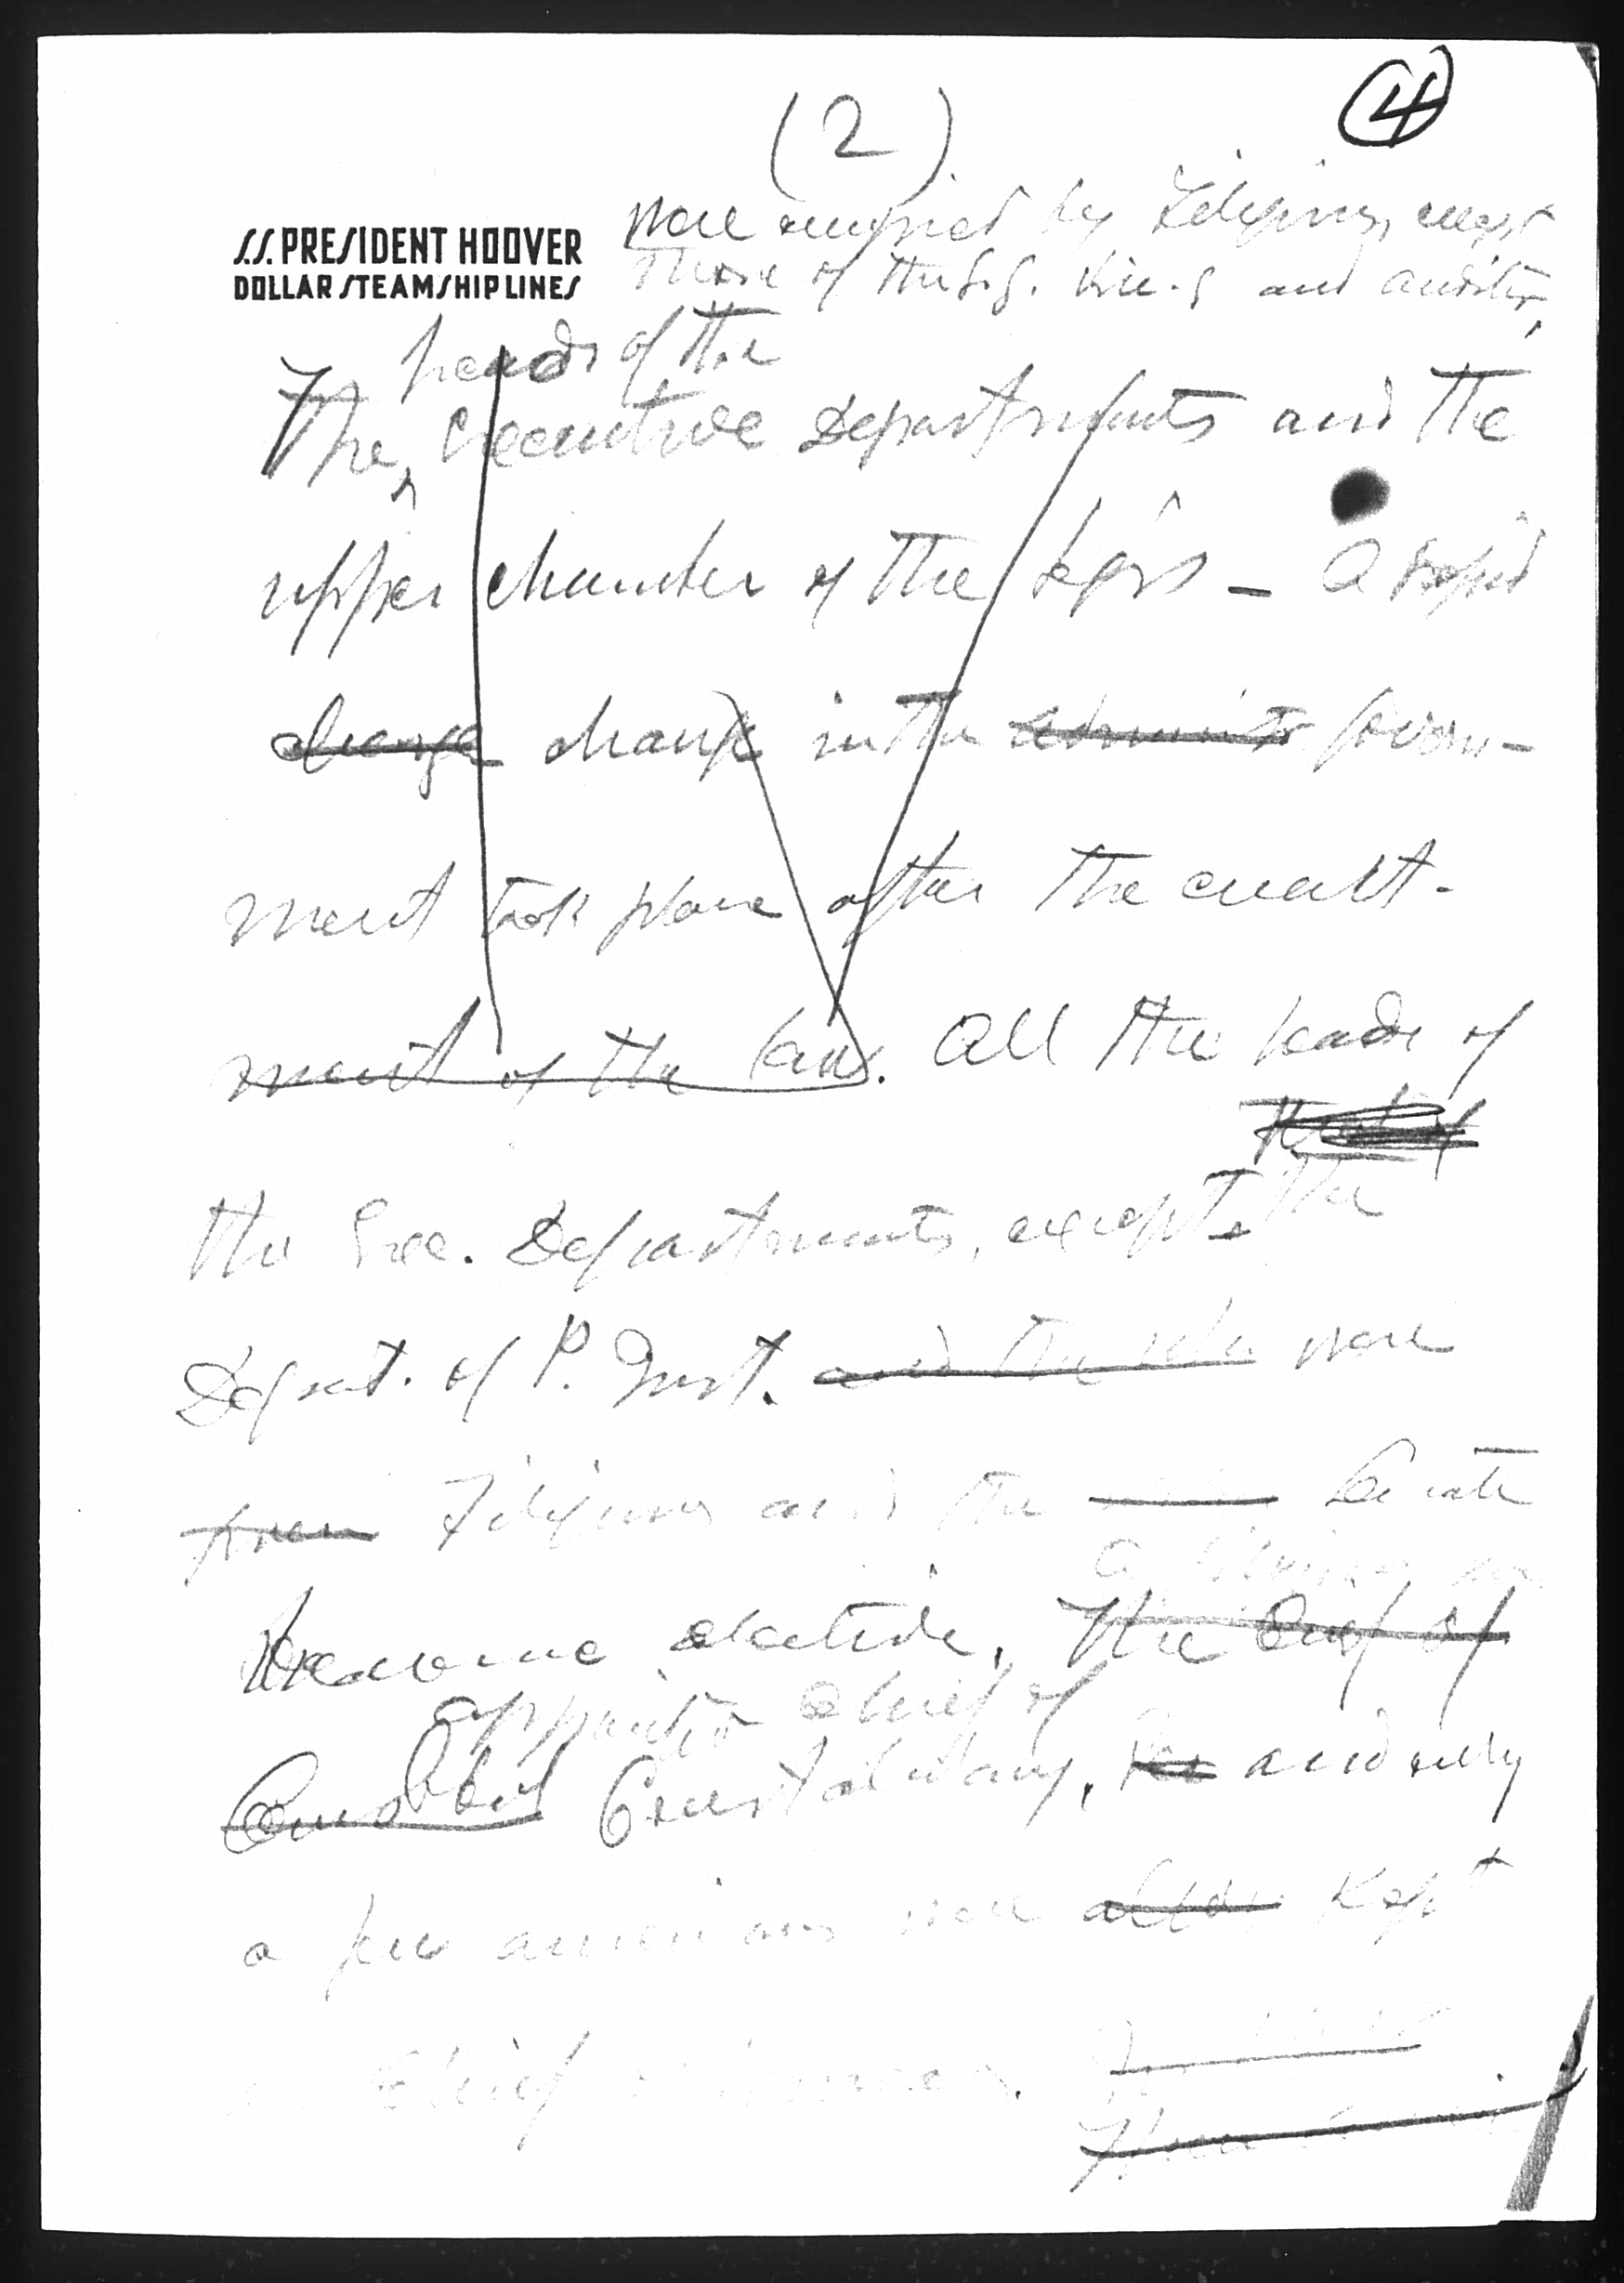 (2)
4
S.S. PRESIDENT HOOVER
DOLLAR STEAMSHIP LINES
were occupied by Filipinos, except
those of the G.G. Vice-G and auditor,
heads of the
The executive Departments and the
upper chamber of the Legis - A rapid
change change in the administ govern-
ment took place after the enact-
ment of the law. All the heads of
the Exec. Departments, except the
Depart. of P. Inst. and the were
from Filipinos and the Senate
became elective. The Chief of
a Filipino was
appointed Chief of
Constab Constabulary, and only
a few americans were kept
as Chief of